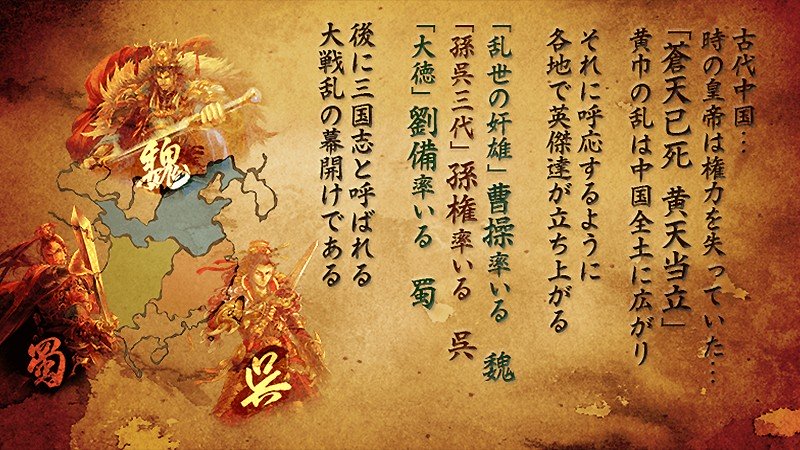 古代中国…
時の皇帝は権力を失っていた…
「蒼天已死 黄天当立」
黄巾の乱は中国全土に広がり
それに呼応するように
各地で英傑達が立ち上がる
「乱世の奸雄」曹操率いる 魏
「孫呉三代」孫権率いる 呉
「大徳」劉備率いる 蜀
後に三国志と呼ばれる
大戦乱の幕開けである
魏
蜀
呉